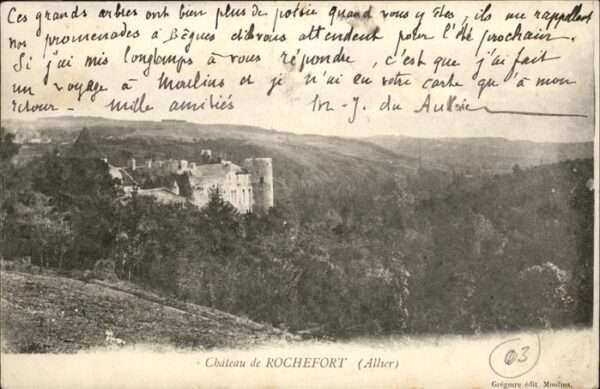 Ces grands arbres ont bien plus de poésie quand vous y êtes, ils me rappellent
nos promenades à Bègues et vous attendent pour l'été prochain.
Si j'ai mis longtemps à vous répondre, c'est que j'ai fait
un voyage à Moulins et je n'ai eu votre carte qu'à mon
retour - mille amitiés M-J. du
Château de ROCHEFORT (Allier)
03
Grégoire édit. Moulins.